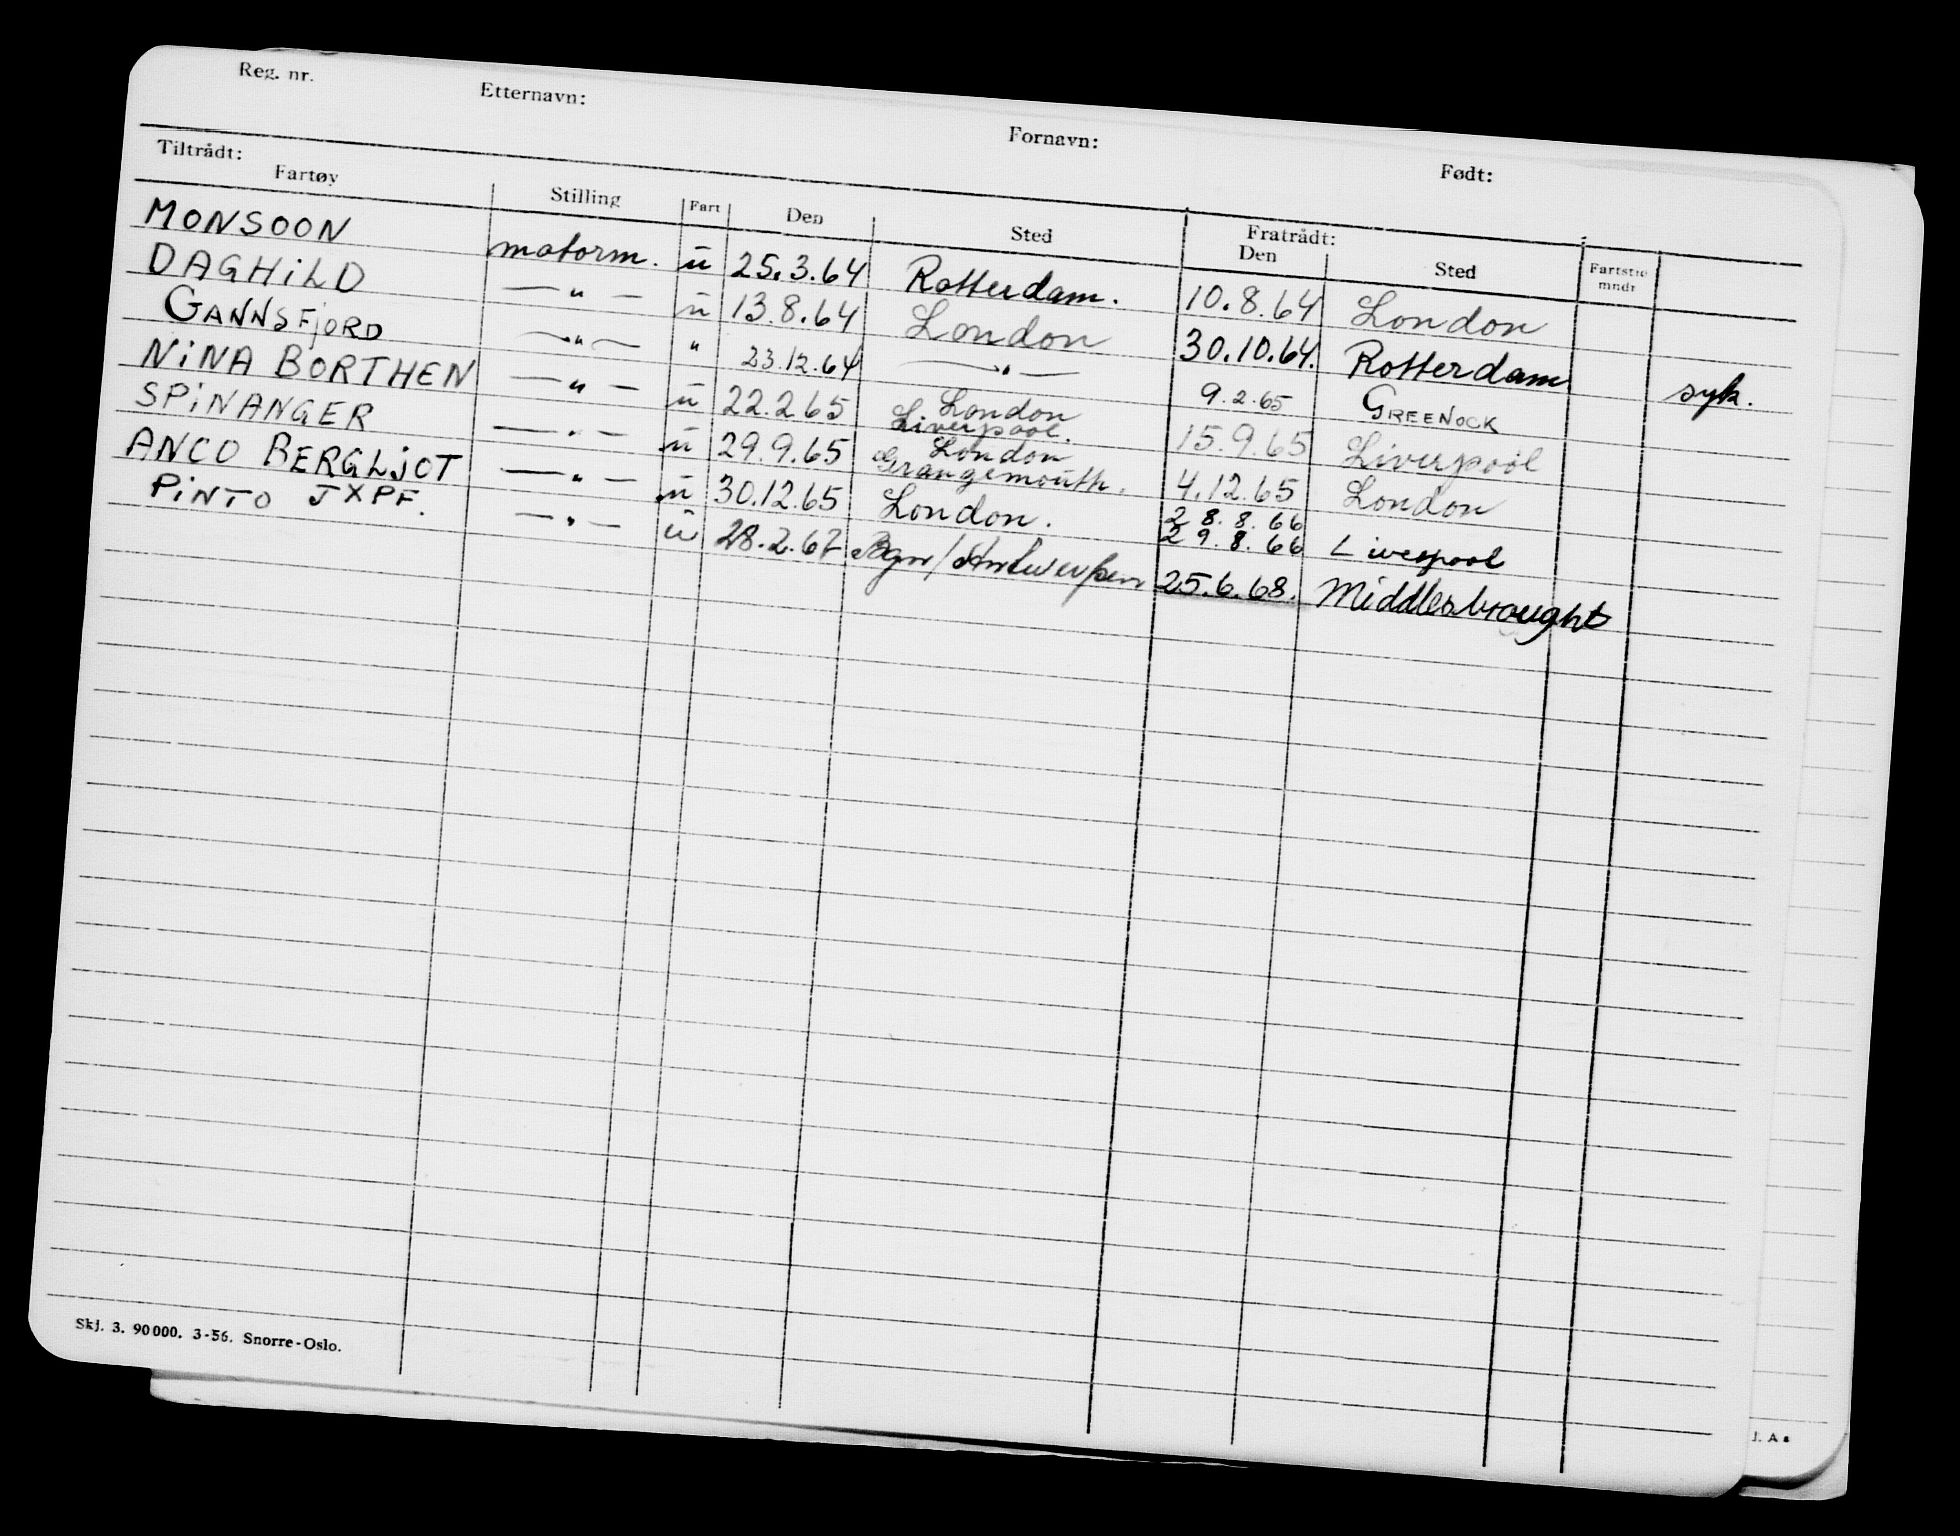 Reg. nr. Etternavn: Fornavn: Født:
Tiltrådt: Fratrådt:
Fartøy Stilling Fart Den Sted Den Sted Fartstid mndr
MONSOON motorm. u 25.3.64 Rotterdam. 10.8.64 London
DAGHiLD —"— u 13.8.64 London 30.10.64. Rotterdam syk.
GANNSFjORD —"— " 23.12.64 —"— 9.2.65 GREENOCK
NiNA BORTHEN —"— u 22.2.65 London Liverpool. 15.9.65 Liverpool
SPiNANGER —"— u 29.9.65 London Grangemouth. 4.12.65 London
ANCO BERGLjOT —"— u 30.12.65 London. 28.8.66 29.8.66 Liverpool
PiNTO JXPF. —"— u 28.2.67 Bgn/Antwerpen 25.6.68. Middlesbrought
Skj. 3. 90000. 3-56. Snorre-Oslo.